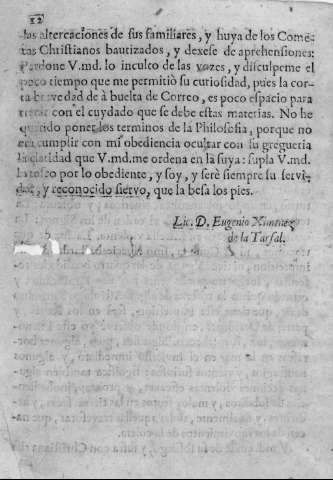 12
las altercaciones de sus familiares, y huya de los Come-
tas Christianos bautizados, y dexese de aprehensiones:
Perdone V.md. lo inculto de las vozes, y disculpeme el
poco tiempo que me permitiò su curiosidad, pues la cor-
ta brevedad de à buelta de Correo, es poco espacio para
con el cuydado que se debe estas materias. No he
querido poner los terminos de la Philosofia, porque no
era cumplir con mi obediencia ocultar con su gregueria
la claridad que V.md. me ordena en la suya: supla V.md.
lo tosco por lo obediente, y soy, y serè siempre su servi-
dor, y reconocido siervo, que la besa los pies.
Lic. D. Eugenio Ximenez
de la Tarfal.